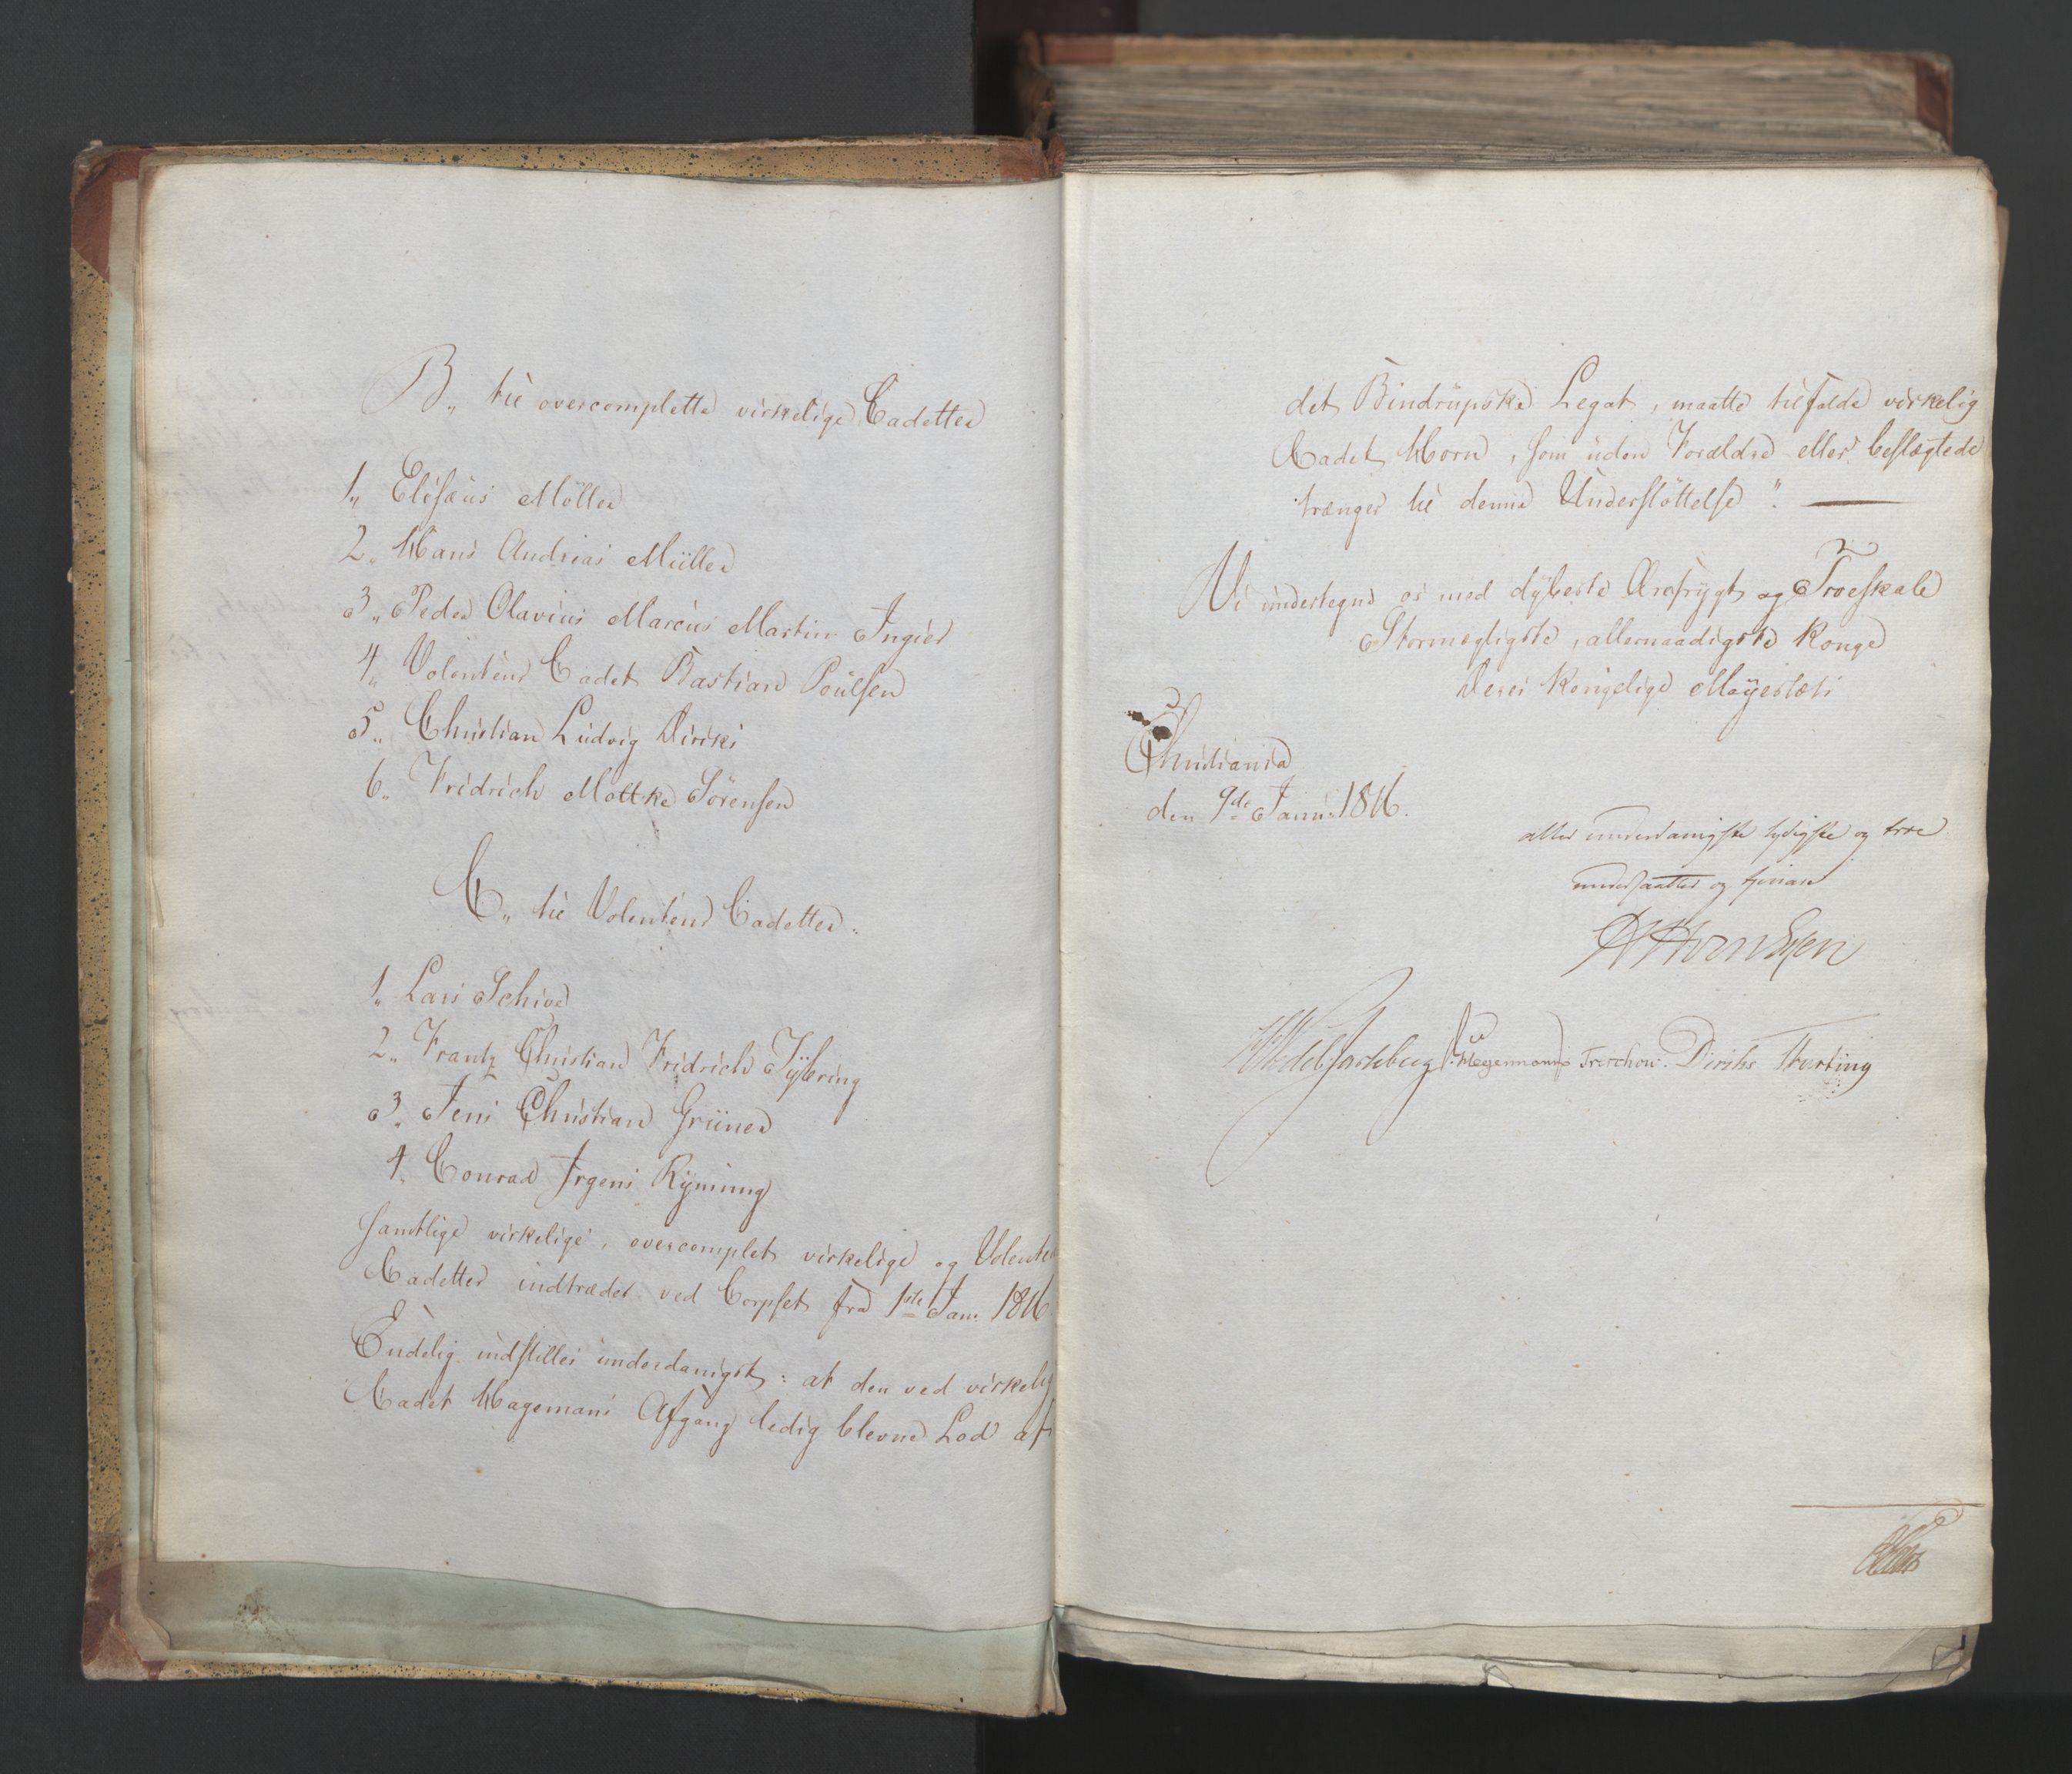 B„ til overcomplette virkelige Cadetter
1„ Elisæus Møller
2„ Hans Andreas Müller
3„ Peder Olavius Marcus Martin Ingier
4„ Volentair Cadet Bastian Poulsen
5„ Christian Ludvig Diriks
6„ Fridrich Moltke Sørensen
C„ til Volentair Cadetter:
1„ Lars Schive
2„ Frantz Christian Fridrich Sÿbring
3„ Jens Christian Grüner
4„ Conrad Irgens Rÿnning
samtlige virkelige, overcomplet virkelige og Volentai
Cadetter indtrædet ved Corpset fra 1ste Jan: 1816
Endelig indstilles underdanigst: at den ved virkelig
Cadet Hagemans Afgang ledig blevne Lod af
det Bindrupske Legat, maatte tilfalde virkelig
Cadet Horn, som uden Forældre eller beslægtede
trænger til denne Understøttelse". —
Vi undertegne os med dÿbeste Ærefrÿgt og Troeskab
Stormægtigste, allernaadigste Konge
Deres Kongelige Mayestæts
Christiania
den 9de Janu: 1816.
aller underdanigste lydigste og troe
undersaatter og tjenare
Wedel Jarlsberg Hegermann Treschow. Diriks